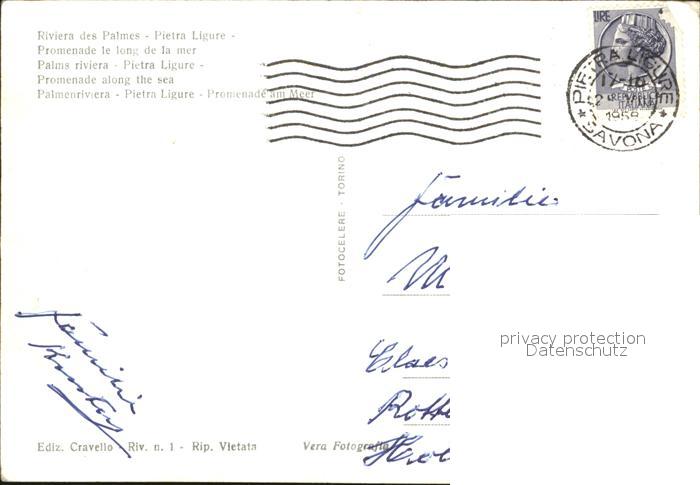 Riviera des Palmes - Pietra Ligure -
Promenade le long de la mer
Palms riviera - Pietra Ligure -
Promenade along the sea
Palmenriviera - Pietra Ligure - Promenade am Meer
LIRE
REPVBBLICA
ITALIANA
PIETRA LIGURE
* SAVONA *
FOTOCELERE - TORINO
Familie
M
privacy protection
Datenschutz
Claes
Rotte
Familie
Ediz. Cravello - Riv. n. 1 - Rip. Vietata
Vera Fotografia